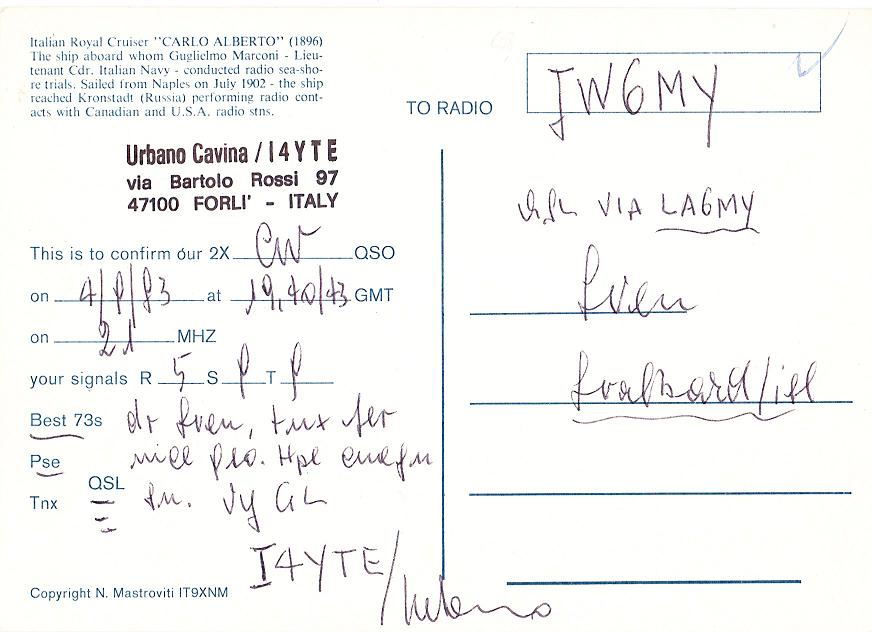 Italian Royal Cruiser "CARLO ALBERTO" (1896)
The ship aboard whom Guglielmo Marconi - Lieu-
tenant Cdr. Italian Navy - conducted radio sea-sho-
re trials. Sailed from Naples on July 1902 - the ship
reached Kronstadt (Russia) performing radio cont-
acts with Canadian and U.S.A. radio stns.
Urbano Cavina / I4YTE
via Bartolo Rossi 97
47100 FORLI' - ITALY
This is to confirm our 2X CW QSO
on 4/8/83 at 19,40/43 GMT
on 21 MHZ
your signals R 5 S 8 T 8
Best 73s dr Sven, tnx fer
Pse nice QSO. Hpe cuagn
QSL
Tnx sn. Vy GL
I4YTE/Urbano
Copyright N. Mastroviti IT9XNM
TO RADIO JW6MY
QSL VIA LA6MY
Sven
Svalbard/isl